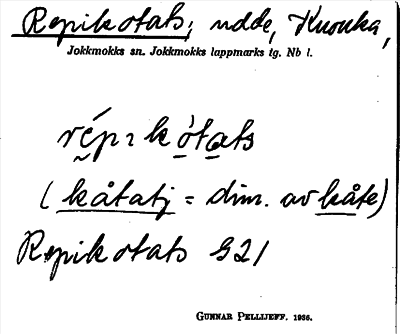 Repikotats, udde, Knouka,
Jokkmokks sn. Jokkmokks lappmarks tg. Nb l.
rép꞉kòtats
(kåtatj = dim. av kåte)
Repikotats G21
GUNNAR PELLIJEFF. 1936.